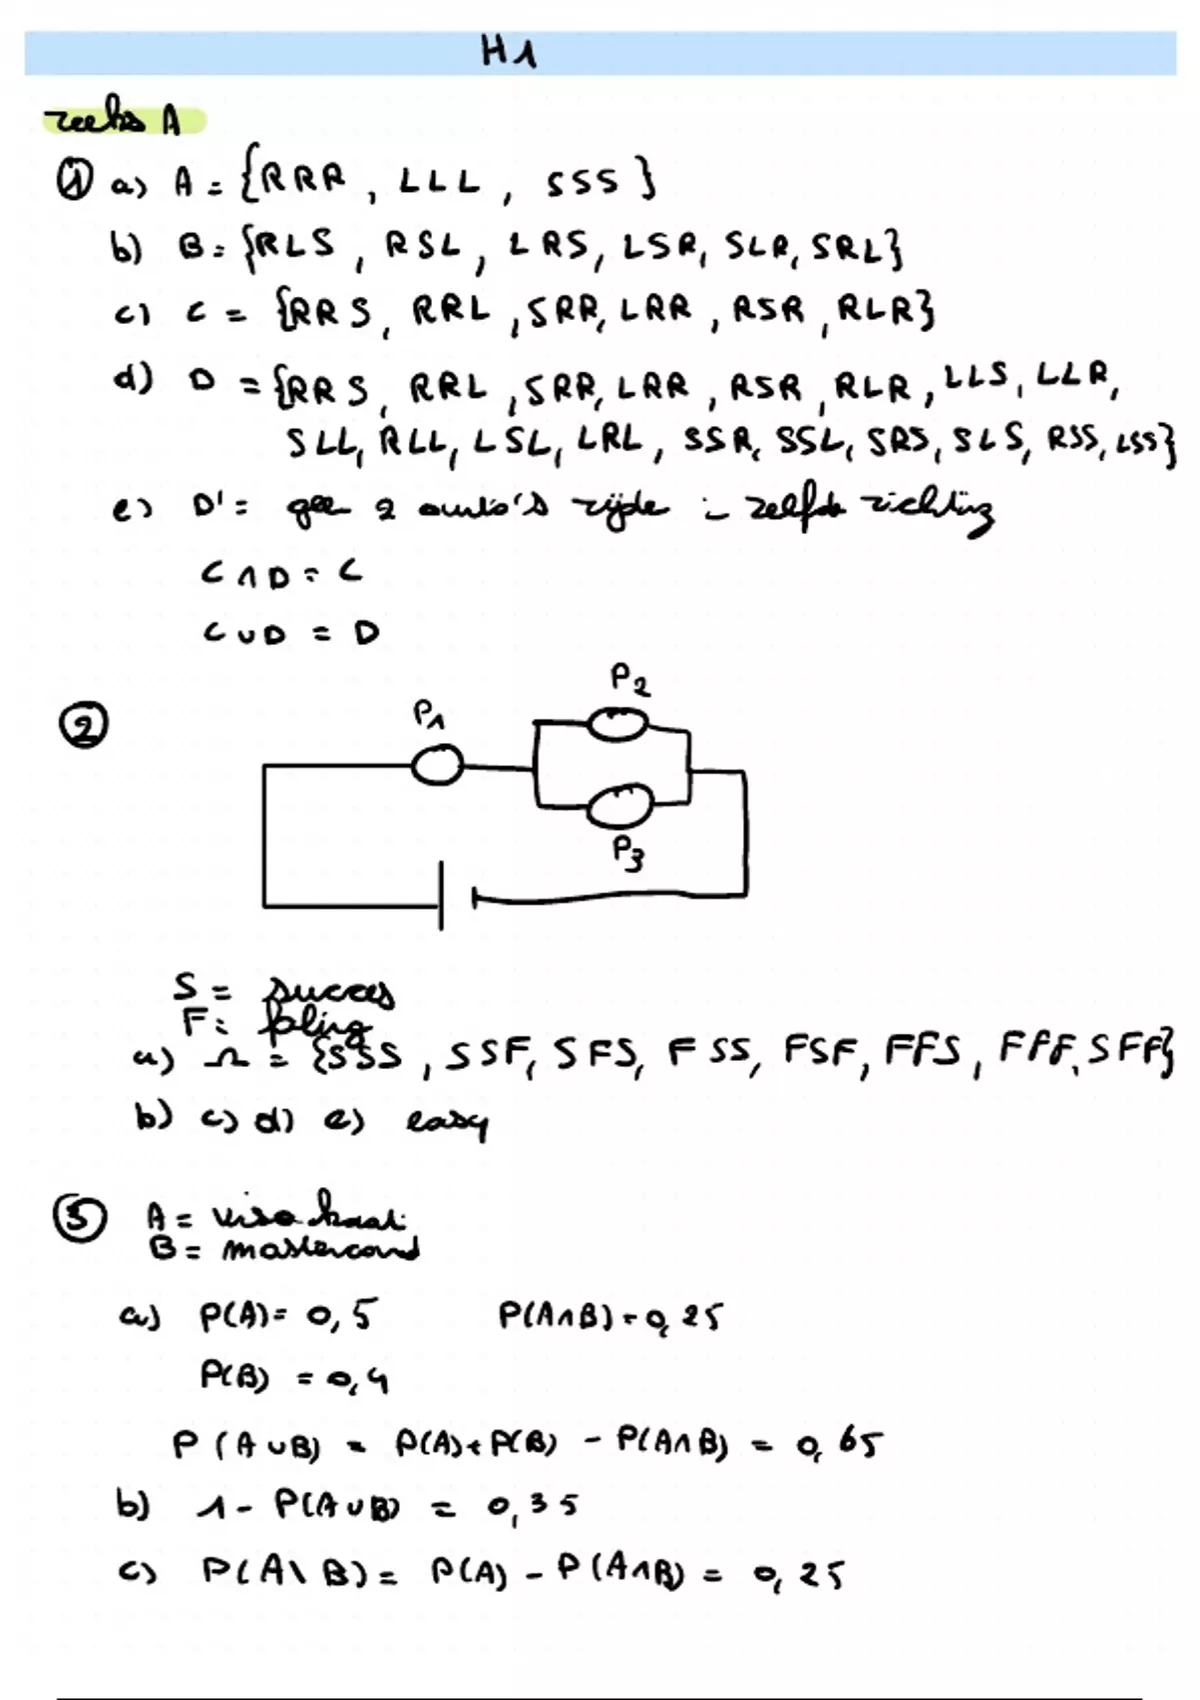 H1
reeks A
① a) A = {RRR, LLL, SSS}
b) B = {RLS, RSL, LRS, LSR, SLR, SRL}
c) C = {RRS, RRL, SRR, LRR, RSR, RLR}
d) D = {RRS, RRL, SRR, LRR, RSR, RLR, LLS, LLR,
SLL, RLL, LSL, LRL, SSR, SSL, SRS, SLS, RSS, LSS}
e) D' = geen 2 auto's rijden in zelfde richting
C ∩ D = C
C ∪ D = D
②
P1
P2
P3
S = succes
F = faling
a) Ω = {SSS, SSF, SFS, FSS, FSF, FFS, FFF, SFF}
b) c) d) e) easy
③ A = visa kaart
B = mastercard
a) P(A) = 0,5 P(A∩B) = 0,25
P(B) = 0,4
P(A∪B) = P(A) + P(B) - P(A∩B) = 0,65
b) 1 - P(A∪B) = 0,35
c) P(A\B) = P(A) - P(A∩B) = 0,25